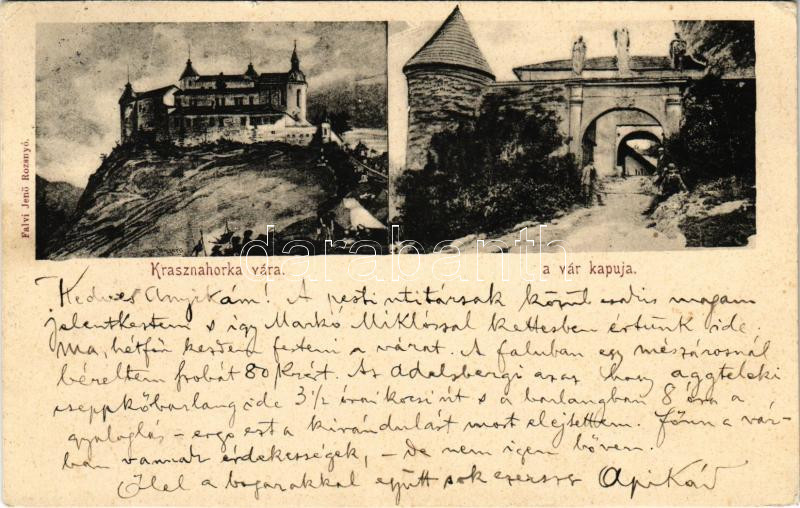 Falvi Jenő Rozsnyó.
Krasznahorka vára.
a vár kapuja.
darabanth
Kedves Anyikám! A pesti utitársak közül csakis magam
jelentkeztem s így Markó Miklóssal kettesben értünk ide.
Ma, hétfőn kezdem festeni a várat. A faluban egy mészárosnál
béreltem szobát 80 krért. Az Adelsbergi azaz hogy aggteleki
cseppkőbarlang ide 3½ órai kocsi út s a barlangban 8 óra a
gyaloglás – ergo ezt a kirándulást most elejtettem. Fönn a vár-
ban vannak érdekességek, – de nem igen bőven.
Ölel a bogarakkal együtt sok ezerszer Apikád